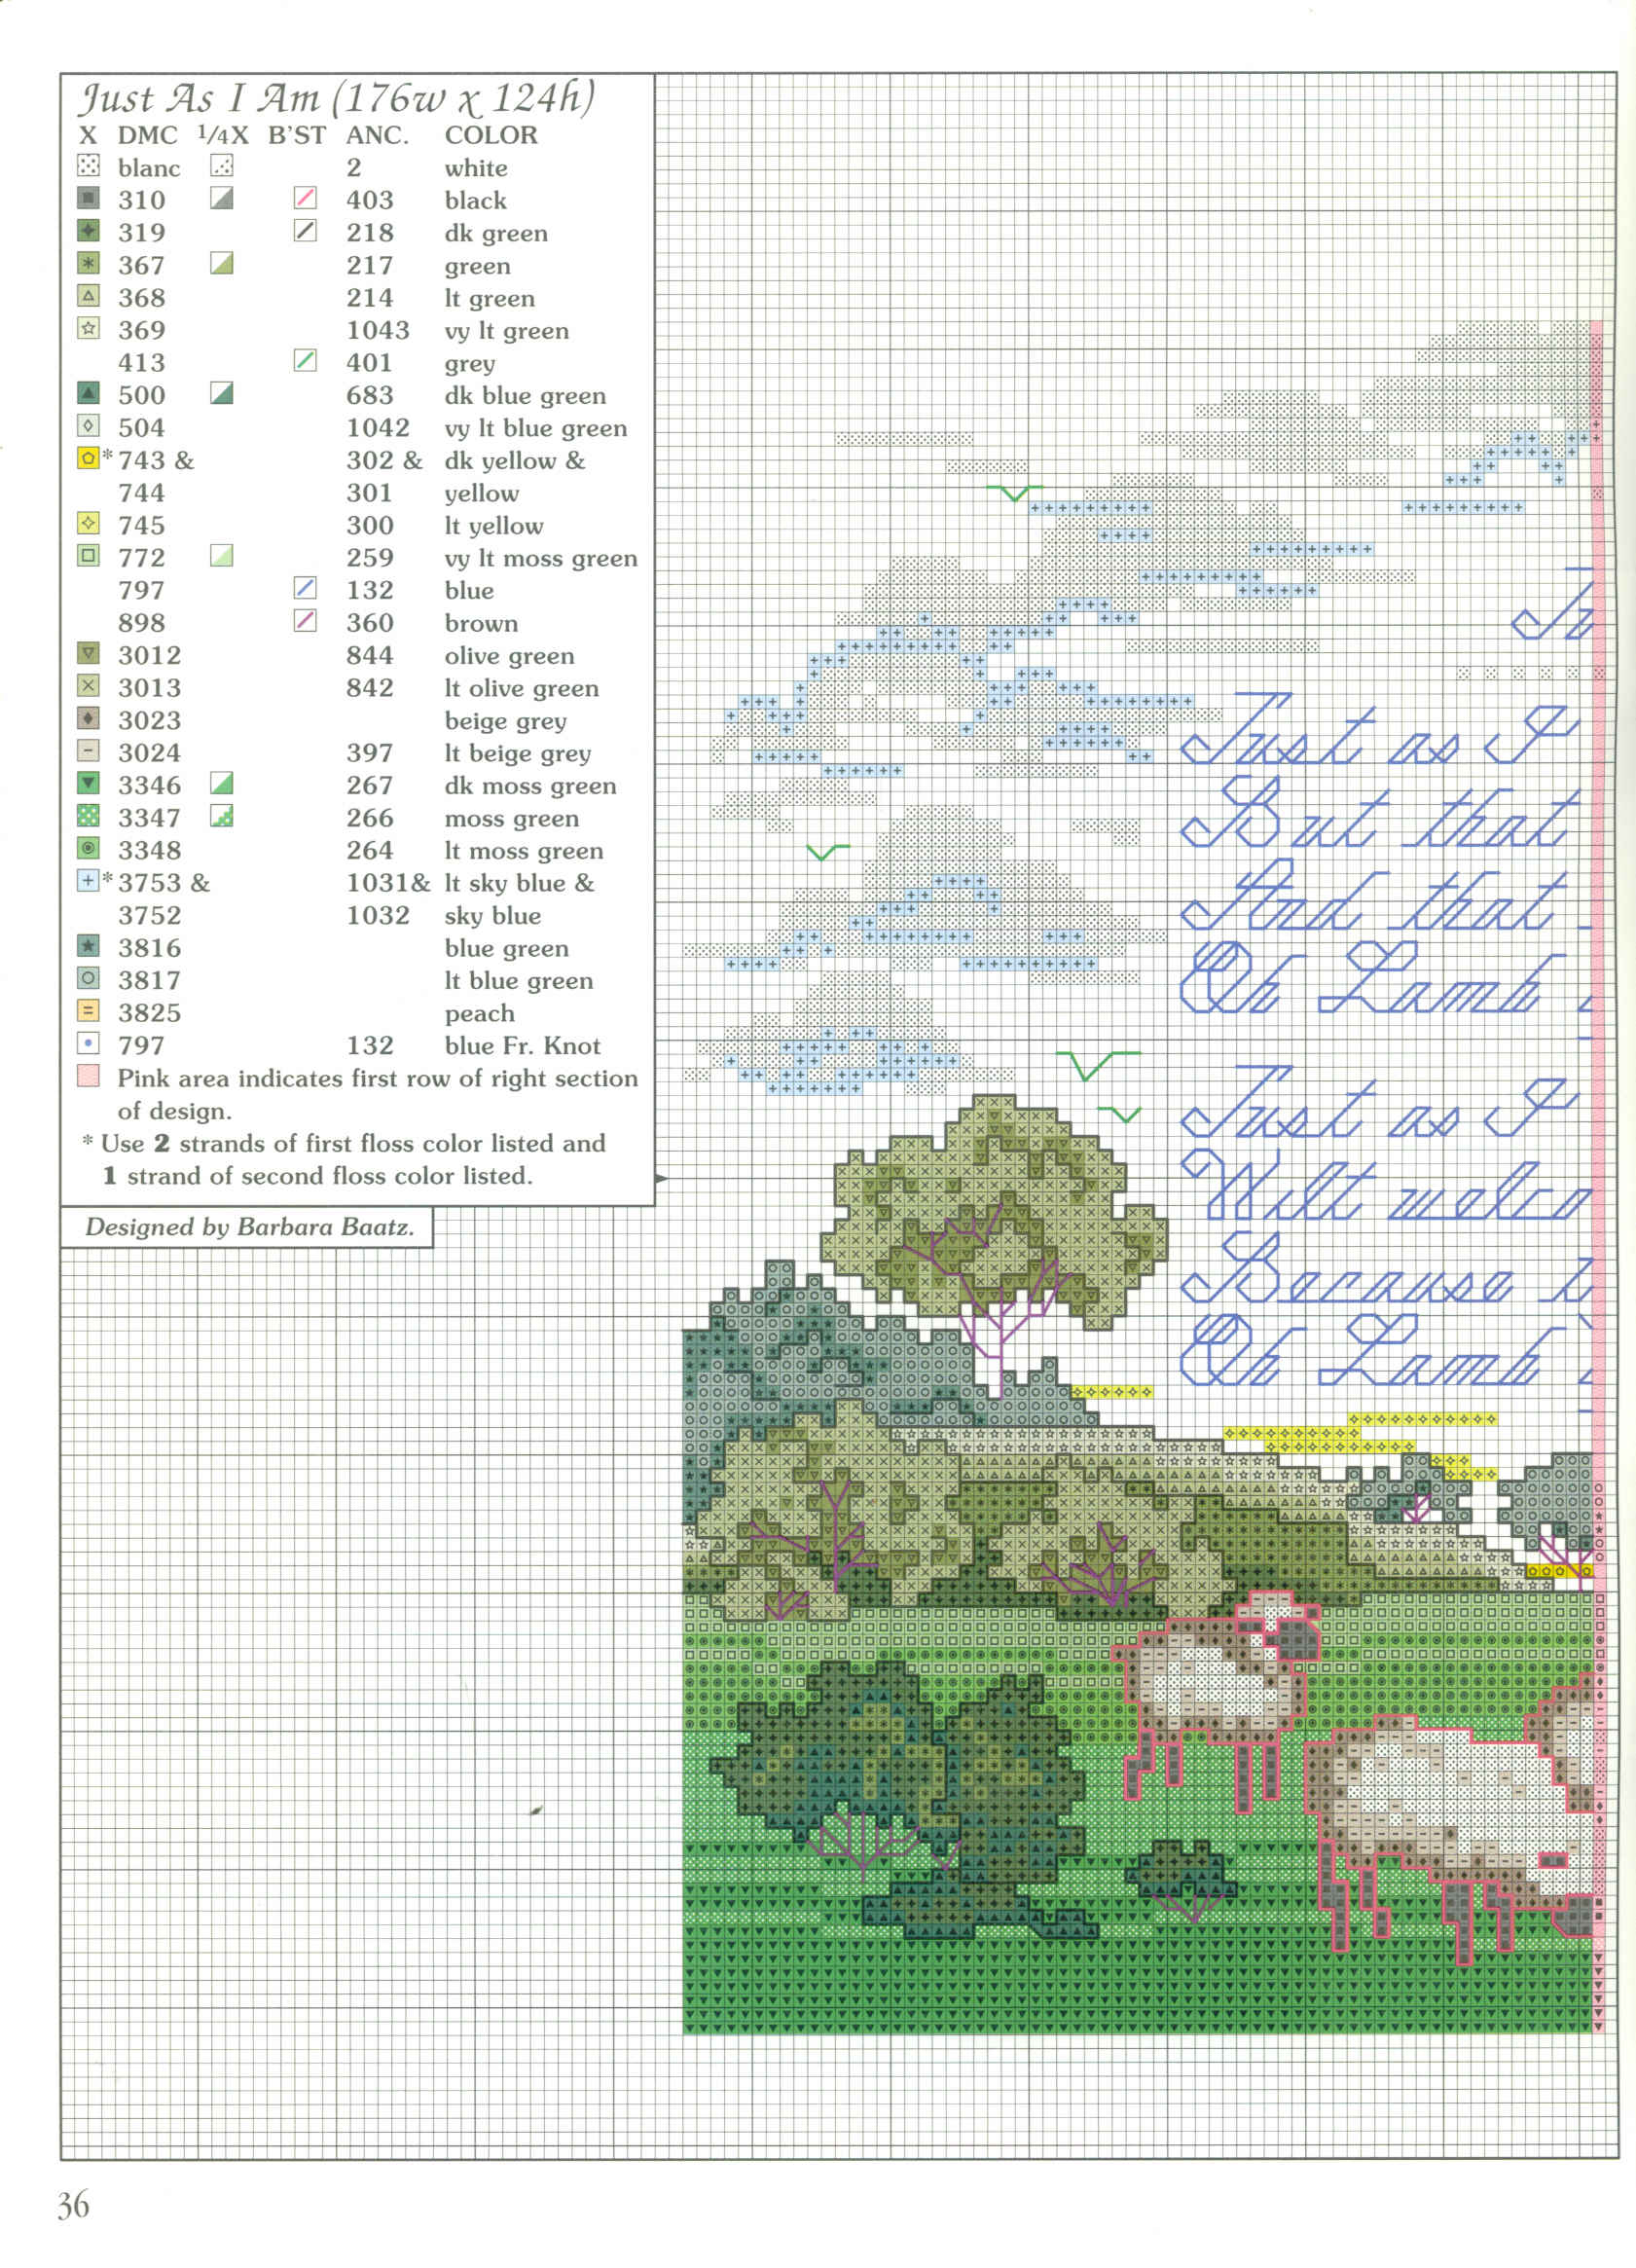 Just As I Am (176w x 124h)
X DMC 1/4X B'ST ANC. COLOR
blanc 2 white
310 403 black
319 218 dk green
367 217 green
368 214 lt green
369 1043 vy lt green
413 401 grey
500 683 dk blue green
504 1042 vy lt blue green
* 743 & 302 & dk yellow &
744 301 yellow
745 300 lt yellow
772 259 vy lt moss green
797 132 blue
898 360 brown
3012 844 olive green
3013 842 lt olive green
3023 beige grey
3024 397 lt beige grey
3346 267 dk moss green
3347 266 moss green
3348 264 lt moss green
* 3753 & 1031& lt sky blue &
3752 1032 sky blue
3816 blue green
3817 lt blue green
3825 peach
797 132 blue Fr. Knot
Pink area indicates first row of right section
of design.
* Use 2 strands of first floss color listed and
1 strand of second floss color listed.
Designed by Barbara Baatz.
Just as I
But that
And that
Oh Lamb
Just as I
Wilt welco
Because
Oh Lamb
36